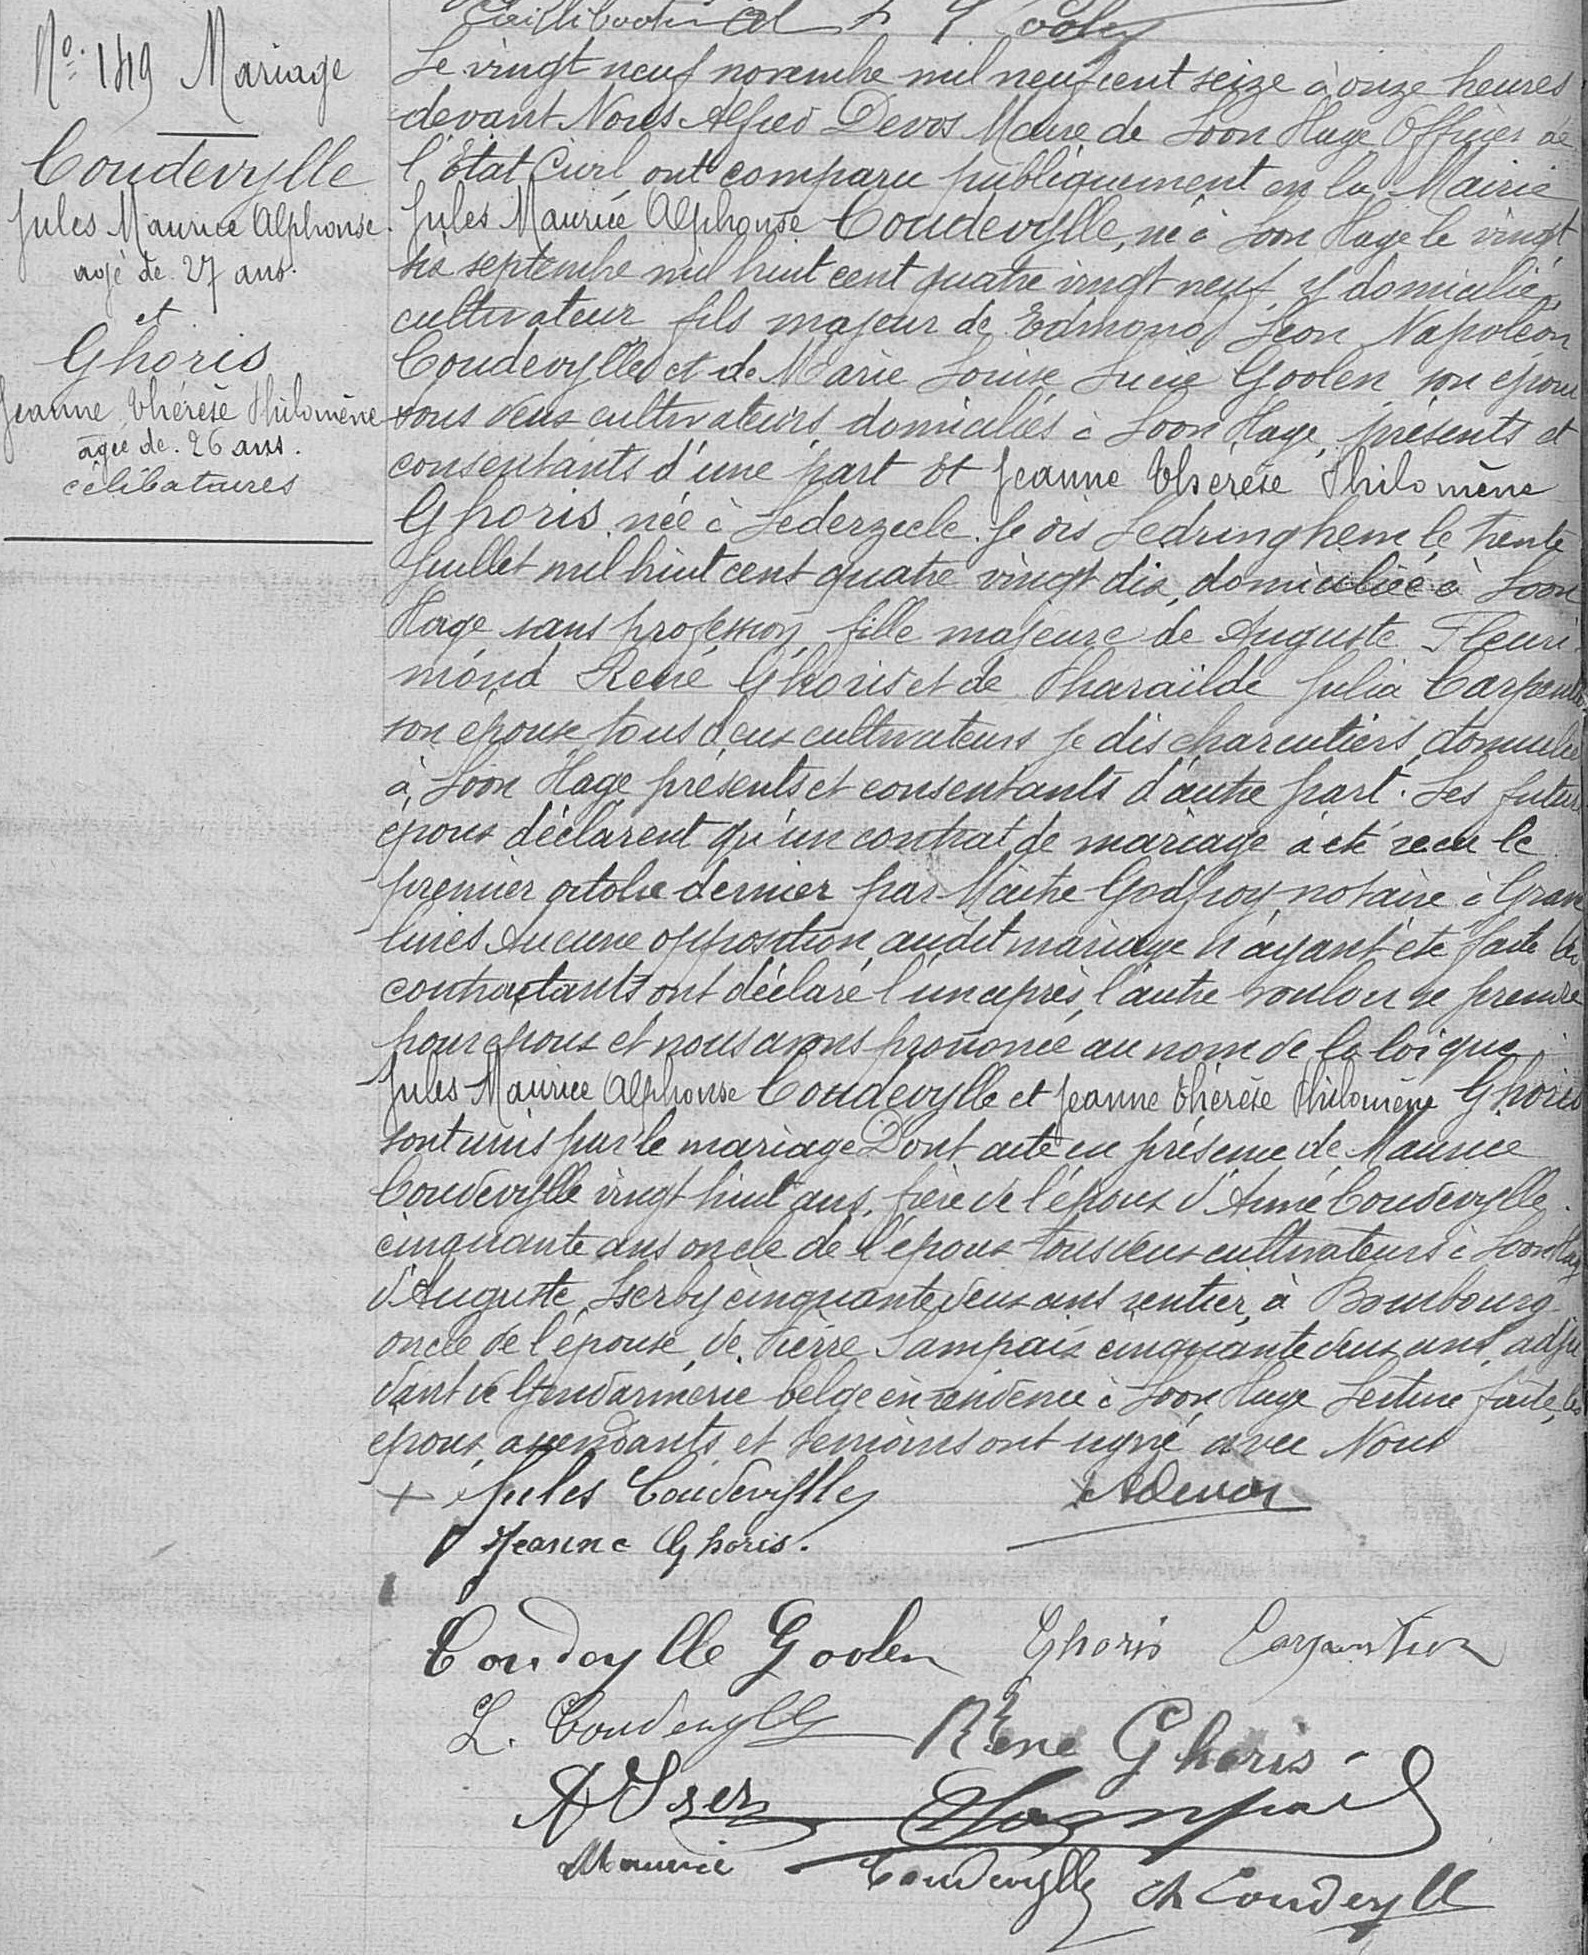 Nº 149 Mariage
Coudevylle
Jules Maurice Alphonse
agé de 27 ans.
et
Ghoris
Jeanne Thérèse Philomène
agée de 26 ans.
célibataires
Le vingt neuf novembre mil neuf cent seize à onze heures
devant Nous Alfred Devos Maire de Loon Plage Officier de
l'Etat Civil ont comparu publiquement en la Mairie
Jules Maurice Alphonse Coudevylle, né à Loon Plage le vingt
six septembre mil huit cent quatre vingt neuf, y domicilié,
cultivateur fils majeur de Edmond Léon Napoléon
Coudevylle et de Marie Louise Lucie Goolen son épouse
tous deux cultivateurs domiciliés à Loon Plage, présents et
consentants d'une part Et Jeanne Thérèse Philomène
Ghoris née à Lederzeele je dis Ledringhem le trente
Juillet mil huit cent quatre vingt dix, domiciliée à Loon
Plage sans profession, fille majeure de Auguste Fleuri
mond René Ghoris et de Pharaïlde Julia Carpentier
son épouse tous deux cultivateurs je dis charcutiers, domiciliés
à Loon Plage présents et consentants d'autre part. Les futurs
époux déclarent qu'un contrat de mariage a été reçu le
premier octobre dernier par Maître Godfroy notaire à Grave
lines Aucune opposition audit mariage n'ayant été faite les
contractants ont déclaré l'un après l'autre vouloir se prendre
pour époux et nous avons prononcé au nom de la loi que
Jules Maurice Alphonse Coudevylle et Jeanne Thérèse Philomène Ghoris
sont unis par le mariage Dont acte en présence de Maurice
Coudevylle vingt huit ans, frère de l'époux d'Aimé Coudevylle
cinquante ans oncle de l'époux tous deux cultivateurs à Loon Plage
d'Auguste Iserby cinquante deux ans rentier, à Bourbourg
oncle de l'épouse, de Pierre Sampaix cinquante deux ans, adju
dant de Gendarmerie belge en résidence à Loon Plage Lecture faite, les
époux, ascendants et témoins ont signé avec Nous
Jules Coudevylle ADevos
Jeanne Ghoris.
Coudevylle Goolen Ghoris Carpentier
L. Coudevylle René Ghoris
Maurice Coudevylle Ch Coudevylle